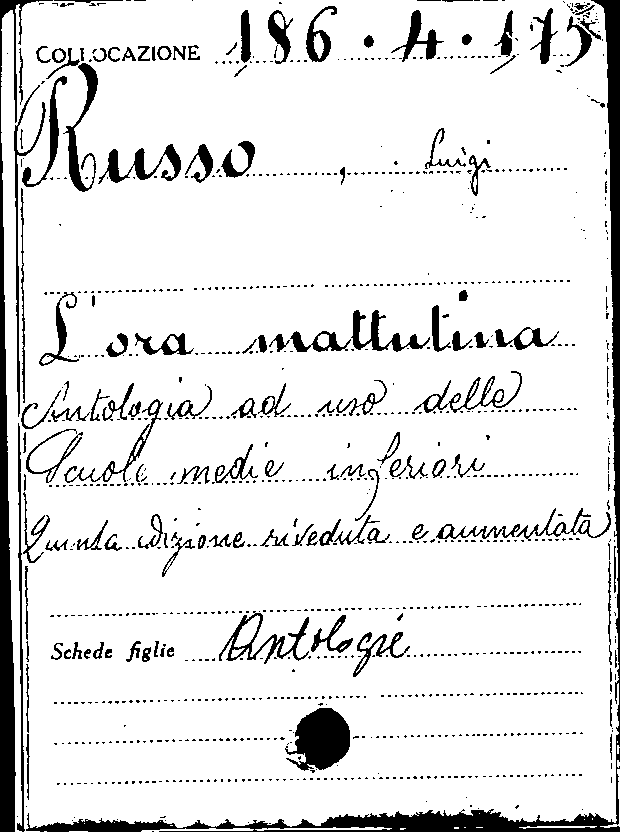 COLLOCAZIONE 186.4.175
Russo, Luigi
L'ora mattutina
Antologia ad uso delle
Scuole medie inferiori
Quinta edizione riveduta e aumentata
Schede figlie Antologie